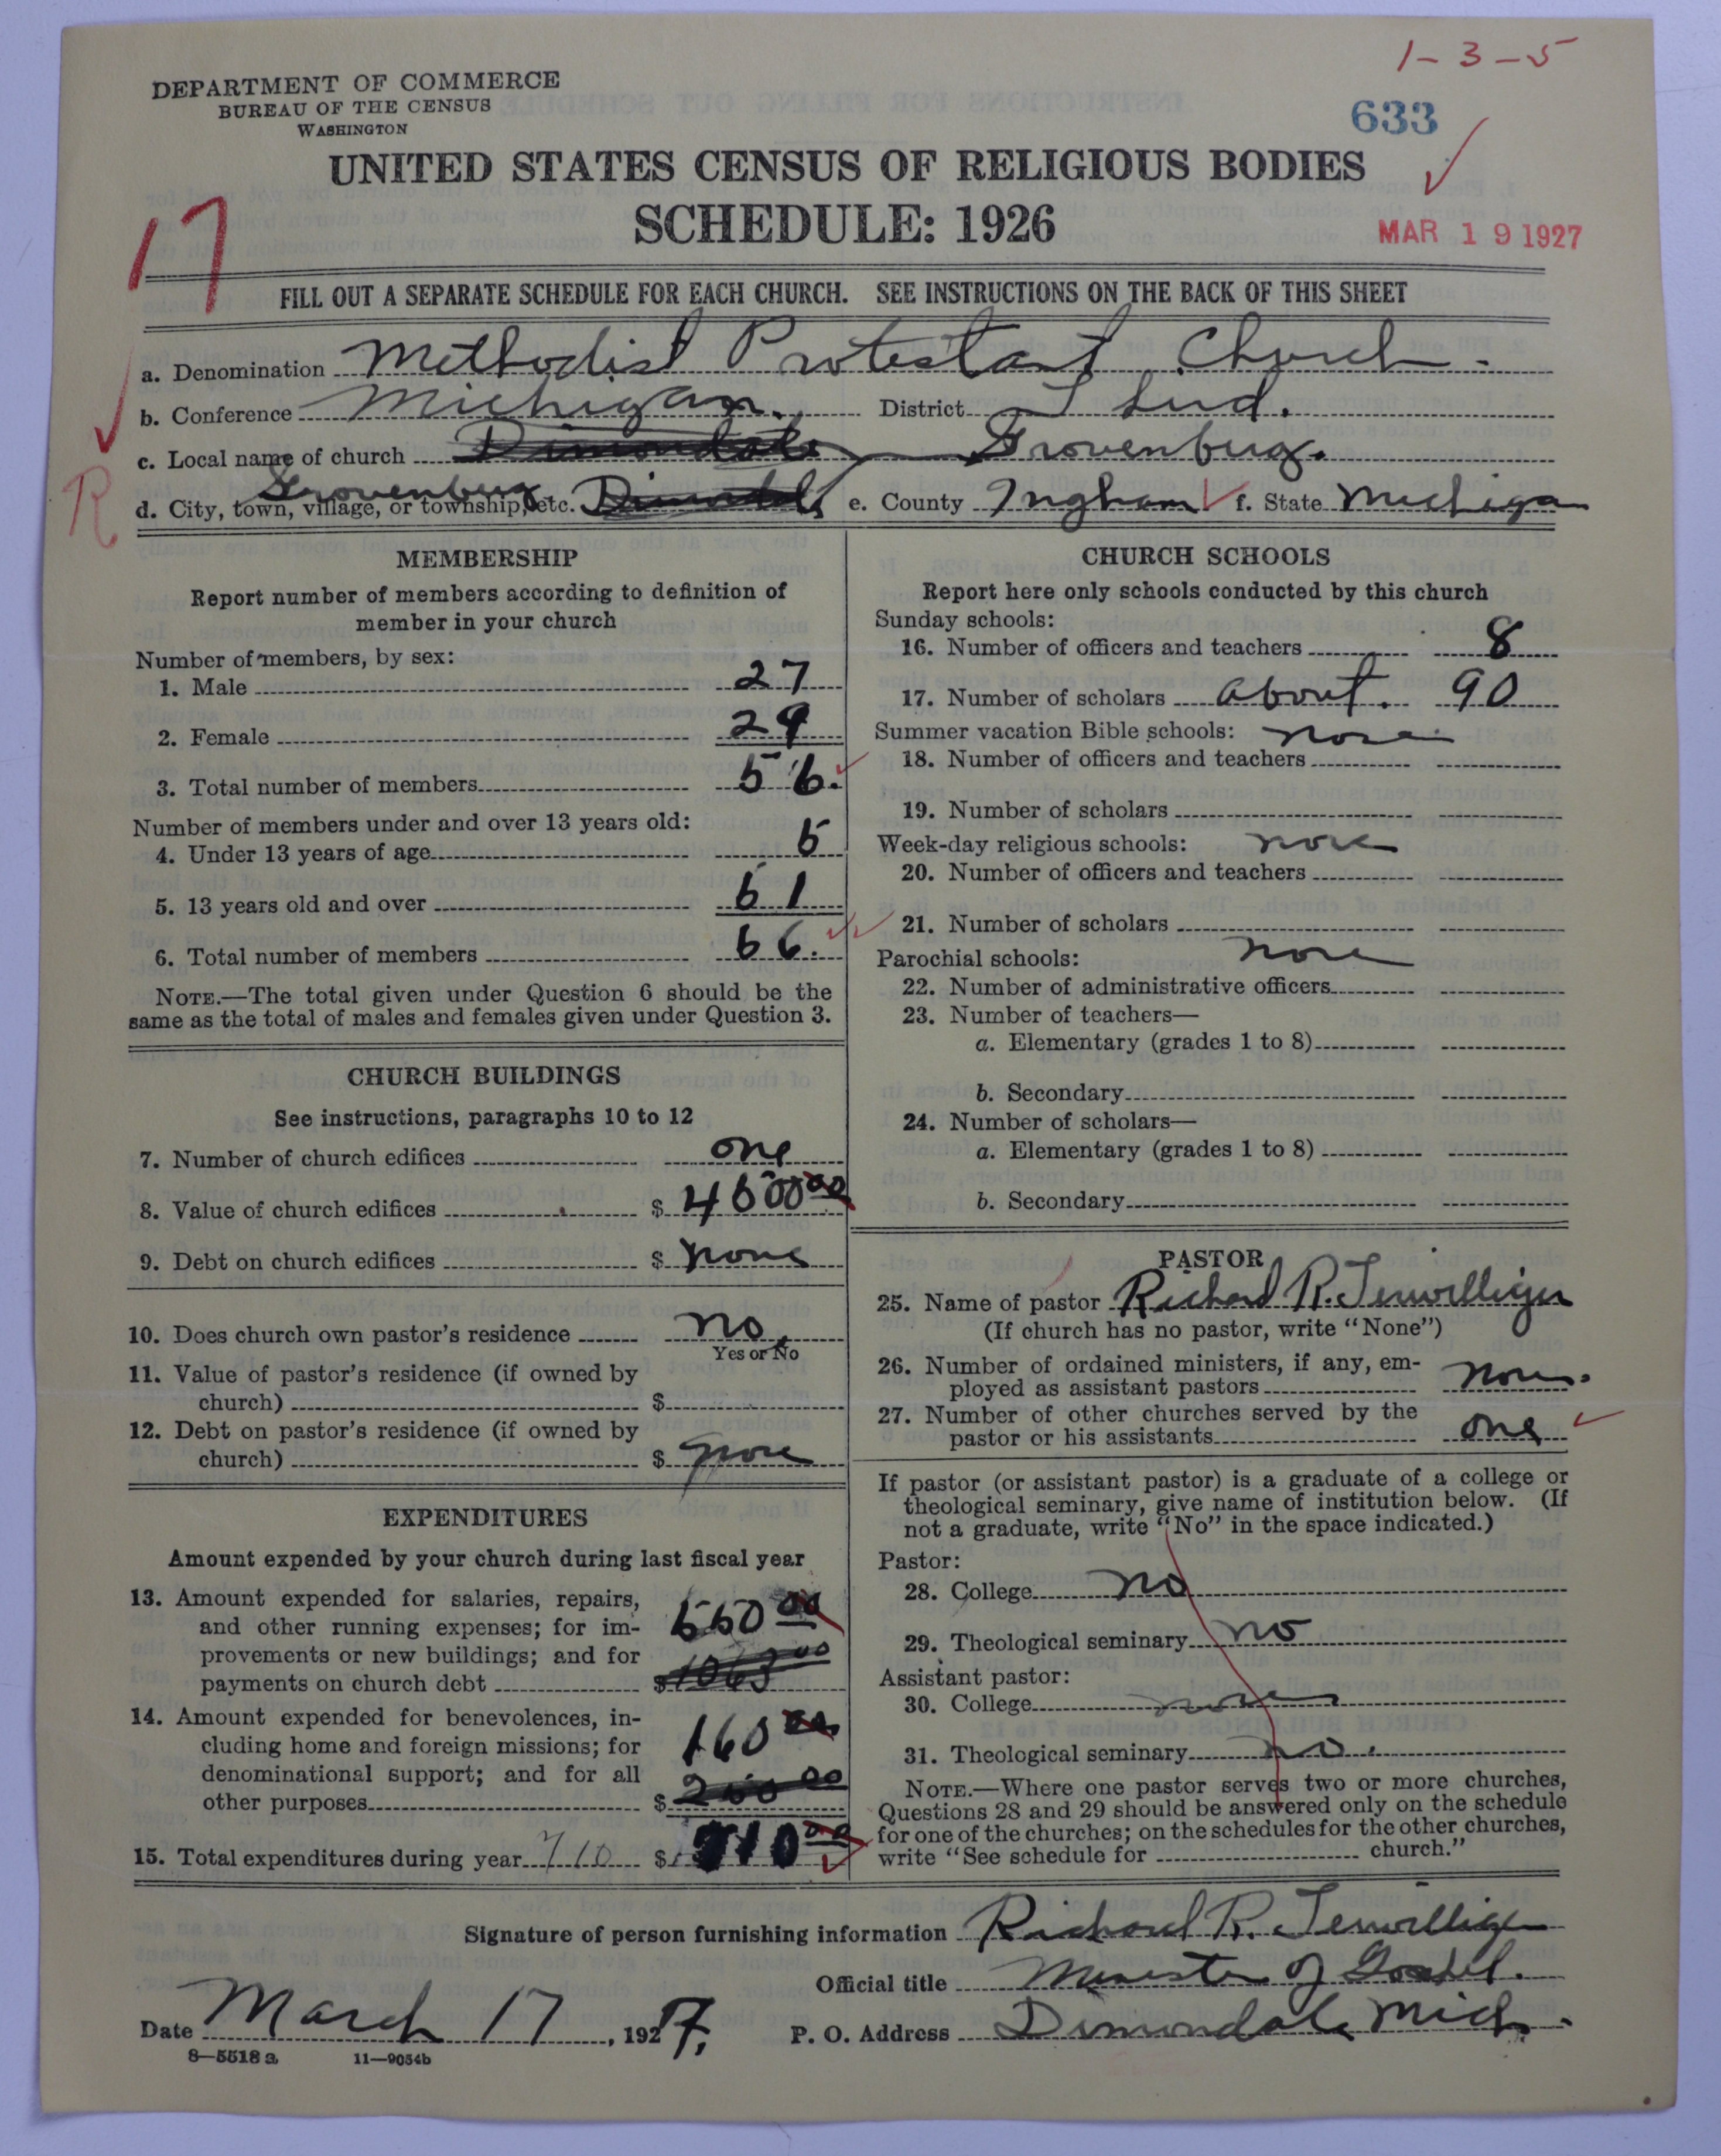 1-3-5
DEPARTMENT OF COMMERCE
BUREAU OF THE CENSUS
WASHINGTON
633
UNITED STATES CENSUS OF RELIGIOUS BODIES
SCHEDULE: 1926
MAR 19 1927
17
FILL OUT A SEPARATE SCHEDULE FOR EACH CHURCH. SEE INSTRUCTIONS ON THE BACK OF THIS SHEET
a. Denomination Methodist Protestant Church.
b. Conference Michigan. District
c. Local name of church Dimondale Grovenburg.
R
d. City, town, village, or township, etc. Grovenburg Dimondale e. County Ingham f. State Michigan
MEMBERSHIP
Report number of members according to definition of
member in your church
Number of members, by sex:
1. Male 27
2. Female 29
3. Total number of members 56.
Number of members under and over 13 years old:
4. Under 13 years of age 5
5. 13 years old and over 51
6. Total number of members 56.
NOTE.—The total given under Question 6 should be the
same as the total of males and females given under Question 3.
CHURCH BUILDINGS
See instructions, paragraphs 10 to 12
7. Number of church edifices one
8. Value of church edifices $ 4500 00
9. Debt on church edifices $ none
10. Does church own pastor's residence no
Yes or No
11. Value of pastor's residence (if owned by
church) $
12. Debt on pastor's residence (if owned by
church) $ none
EXPENDITURES
Amount expended by your church during last fiscal year
13. Amount expended for salaries, repairs,
and other running expenses; for im- 550 00
provements or new buildings; and for
payments on church debt $ 1063 00
14. Amount expended for benevolences, in-
cluding home and foreign missions; for 160 00
denominational support; and for all
other purposes $ 200 00
15. Total expenditures during year 710 $ 710 00
CHURCH SCHOOLS
Report here only schools conducted by this church
Sunday schools:
16. Number of officers and teachers 8
17. Number of scholars about. 90
Summer vacation Bible schools: none
18. Number of officers and teachers
19. Number of scholars
Week-day religious schools: none
20. Number of officers and teachers
21. Number of scholars
Parochial schools: none
22. Number of administrative officers
23. Number of teachers—
a. Elementary (grades 1 to 8)
b. Secondary
24. Number of scholars—
a. Elementary (grades 1 to 8)
b. Secondary
PASTOR
25. Name of pastor Richard R. Terwilliger
(If church has no pastor, write "None")
26. Number of ordained ministers, if any, em-
ployed as assistant pastors none.
27. Number of other churches served by the
pastor or his assistants one
If pastor (or assistant pastor) is a graduate of a college or
theological seminary, give name of institution below. (If
not a graduate, write "No" in the space indicated.)
Pastor:
28. College no
29. Theological seminary no
Assistant pastor:
30. College none
31. Theological seminary no.
NOTE.—Where one pastor serves two or more churches,
Questions 28 and 29 should be answered only on the schedule
for one of the churches; on the schedules for the other churches,
write "See schedule for church."
Signature of person furnishing information Richard R. Terwilliger
Official title Minister of Gospel.
Date March 17, 1927. P. O. Address Dimondale Mich.
8—5518 a 11—9054b